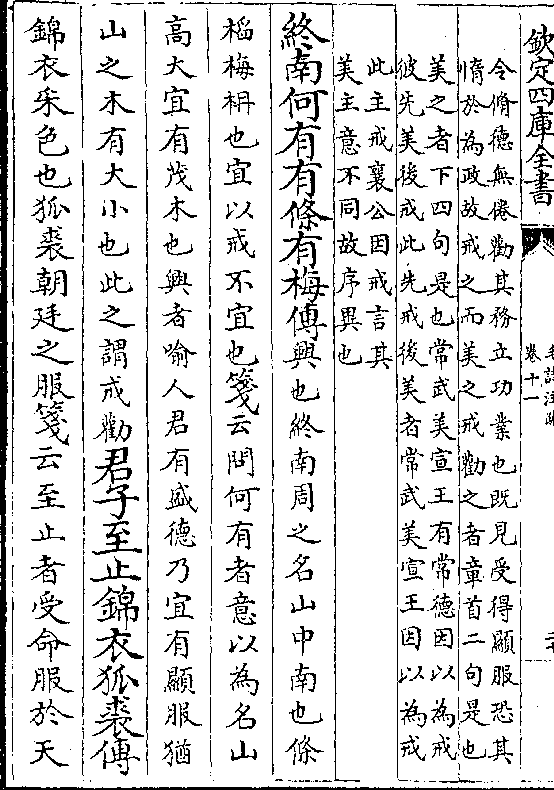 欽定四庫全書
卷十一
令脩德無倦勸其務立功業也既見受得顯服恐其
惰於為政故戒之而美之戒勸之者章首二句是也
美之者下四句是也常武美宣王有常德因以為戒
彼先美後戒此先戒後美者常武美宣王因以為戒
此主戒襄公因戒言其
美主意不同故序異也
終南何有有條有梅傳興也終南周之名山中南也條
槄梅枏也宜以戒不宜也箋云問何有者意以為名山
高大宜有茂木也興者喻人君有盛德乃宜有顯服猶
山之木有大小也此之謂戒勸君子至止錦衣狐裘傳
錦衣采色也狐裘朝廷之服箋云至止者受命服於天